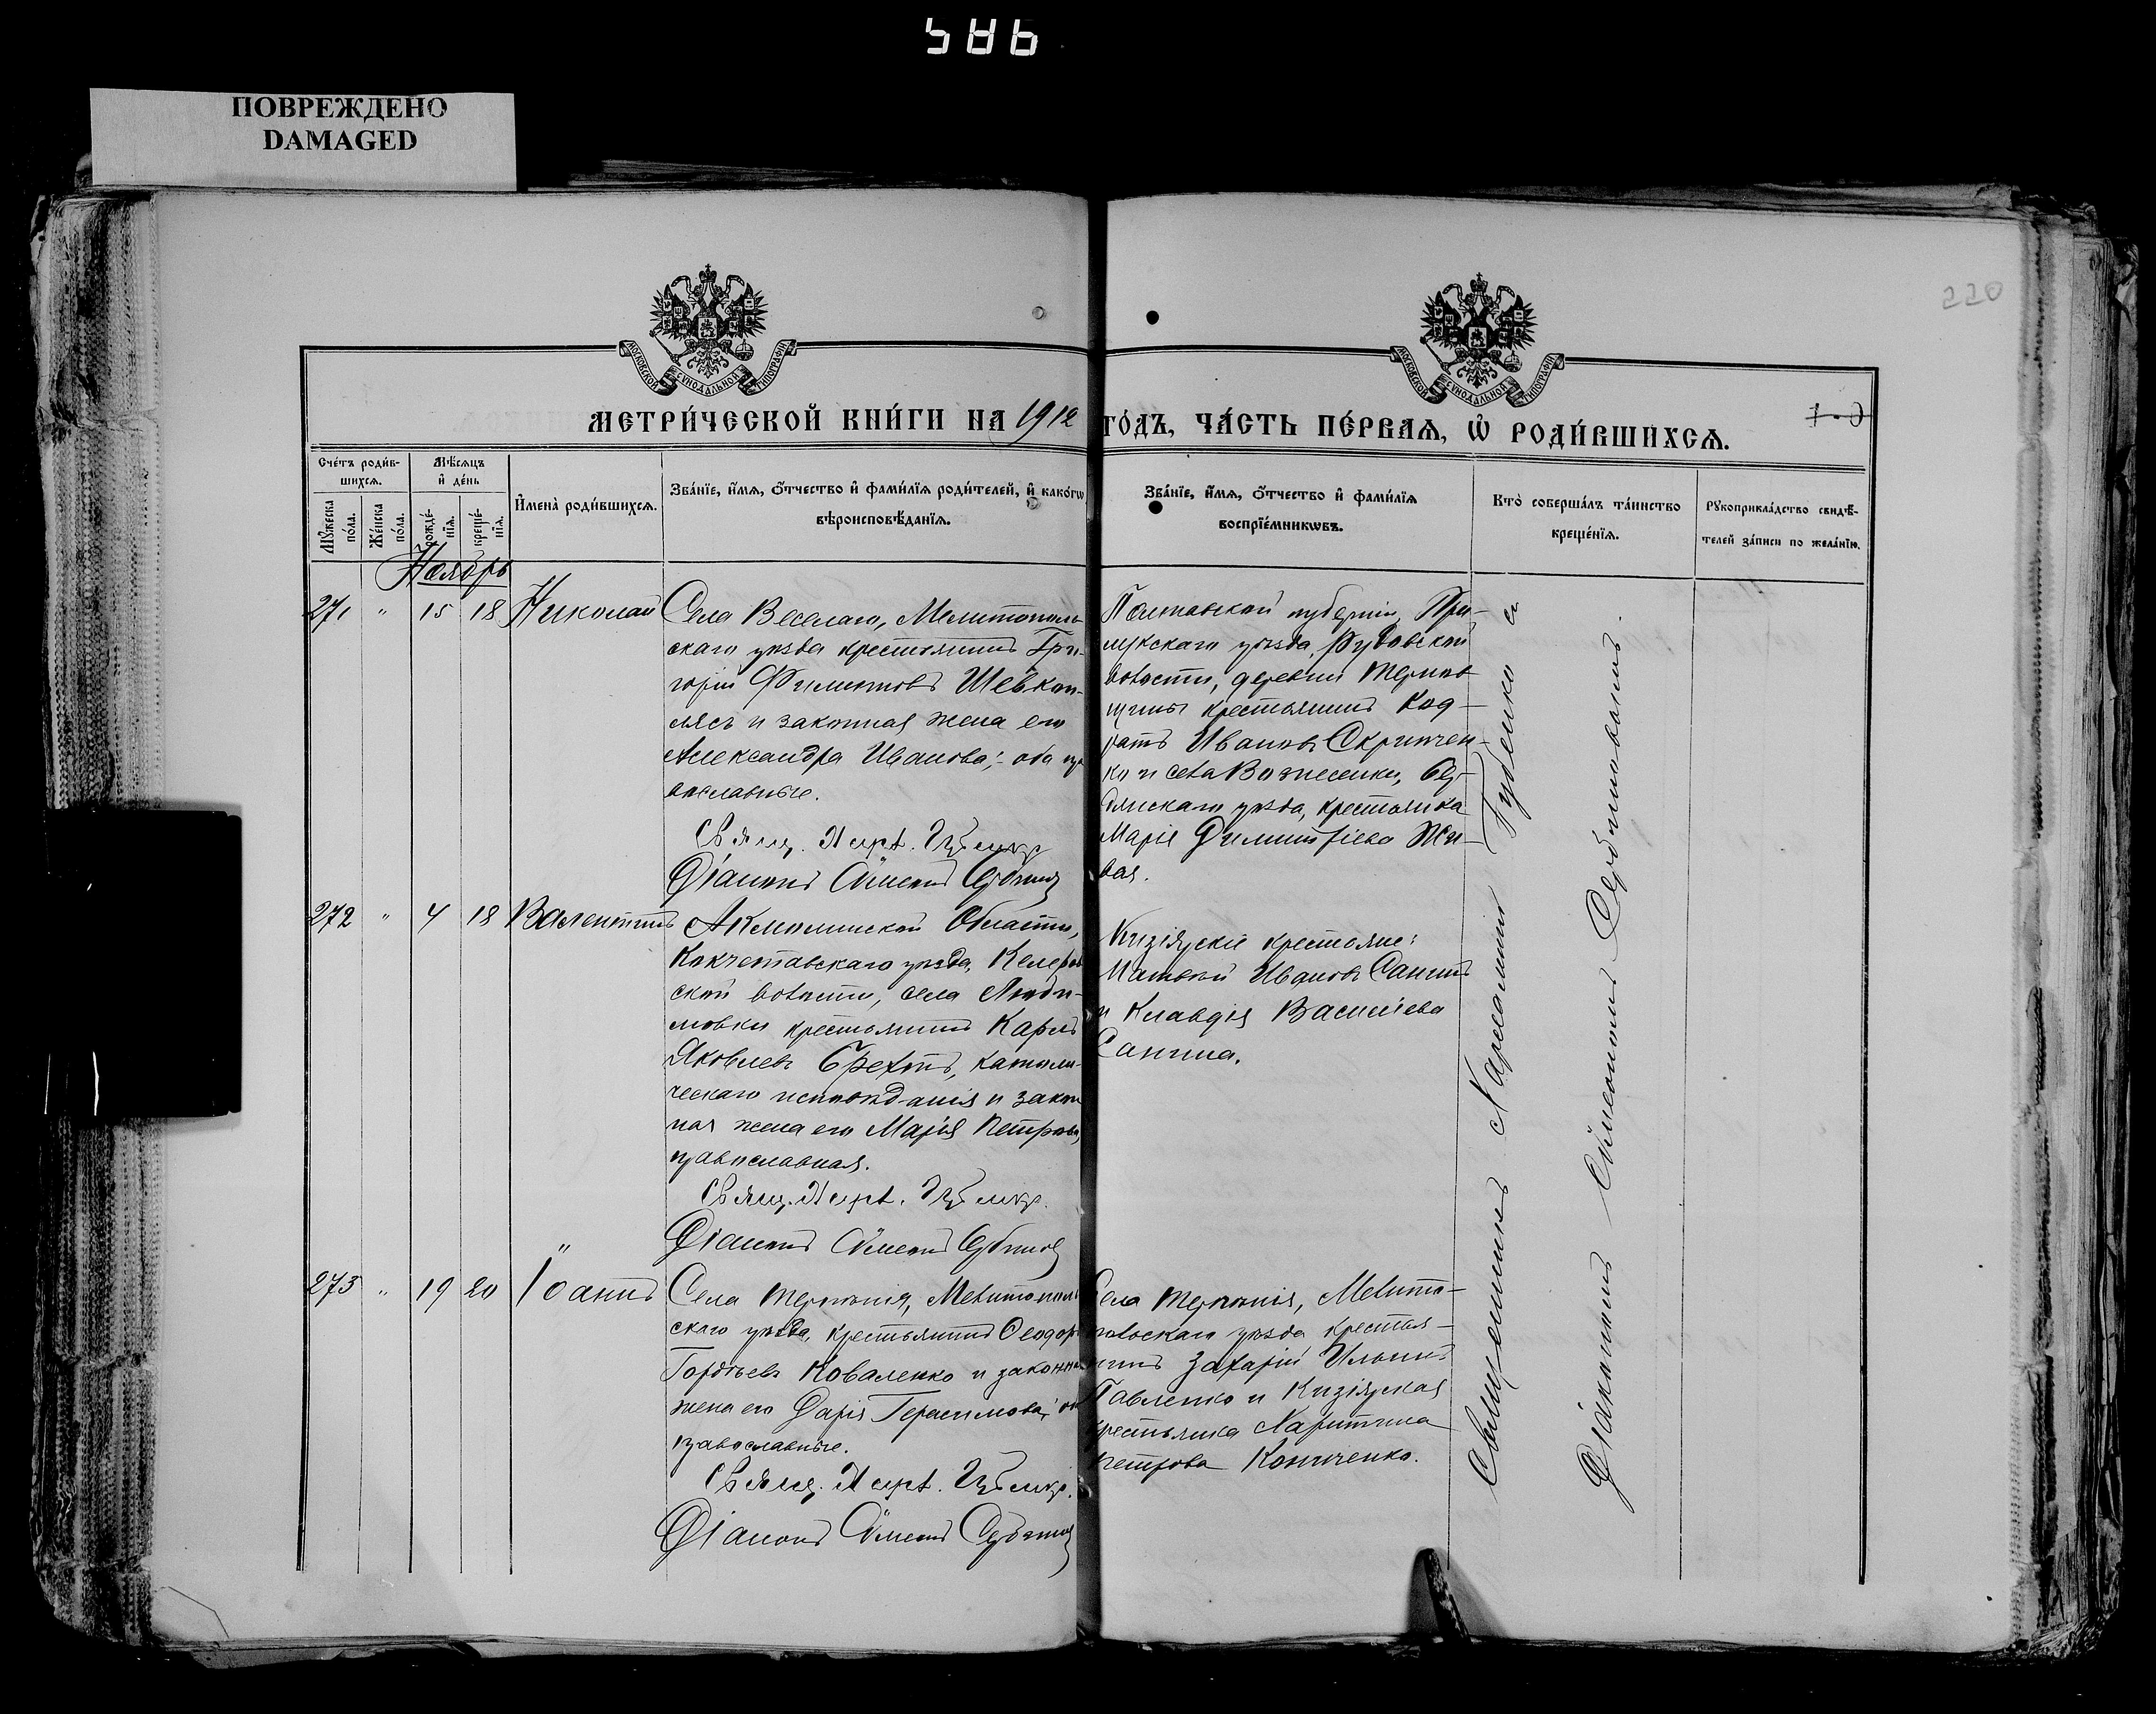 586
ПОВРЕЖДЕНО
DAMAGED
220
МОСКОВСКОЙ СѴНОДАЛЬНОЙ ТИПОГРАФІИ
МОСКОВСКОЙ СѴНОДАЛЬНОЙ ТИПОГРАФІИ
МЕТРИ́ЧЕСКОЙ КНИ́ГИ НА 1912
ГО́ДЪ, ЧА́СТЬ ПЕ́РВАЯ, Ѡ҆ РОДИ́ВШИХСЯ.
Сче́тъ роди́в-
шихсѧ.
Мѣ́сѧцъ
и҆ де́нь
Мꙋ́жеска
по́ла.
Же́нска
по́ла.
рожде́-
нїѧ.
креще́-
нїѧ.
И҆мена̀ роди́вшихсѧ.
Зва́нїе, и҆́мѧ, ѻ҆́тчество и҆ фами́лїѧ роди́телей, и҆ како́гѡ
вѣроисповѣ́данїѧ.
Зва́нїе, и҆́мѧ, ѻ҆́тчество и҆ фами́лїѧ
воспрїе́мникѡвъ.
Кто̀ соверша́лъ та́инство
креще́нїѧ.
Рꙋкоприкла́дство свидѣ́-
телей за́писи по жела́нїю.
Ноябрь
271 " 15 18 Николай
Села Веселаго, Мелитополь
скаго уѣзда крестьянинъ Гри-
горій Филиповъ Шевкоп-
лясъ и законная жена его
Александра Иванова; оба пра
вославные.
Свящ. Харл. Губенко
Діаконъ Сѵмеонъ
Полтавской губерніи, При-
лукскаго уѣзда, Рудовской
волости, деревни Тернов
щины крестьянинъ Код-
ратъ Ивановъ Скрипчен-
ко и села Вознесенки, Бер-
дянскаго уѣзда, крестьянка
Марія Димитріева Жи-
вая.
272 " 4 18 Валентинъ
Акмолинской Области,
Кокчетавскаго уѣзда, Келеров
ской волости, села Люби-
мовки крестьянинъ Карлъ
Яковлевъ Брехтъ, католи-
ческаго исповѣданія и закон
ная жена его Марія Петрова,
православная.
Свящ. Харл. Губенко.
Діаконъ Сѵмеонъ
Кизіярскіе крестьяне:
Матвей Ивановъ Сапинъ
и Клавдія Васильева
Сапина.
273 " 19 20 Іоаннъ
Села Терпѣнія, Мелитополь
скаго уѣзда, крестьянинъ Ѳеодоръ
Гордѣевъ Коваленко и законная
жена его Дарія Герасимова; оба
православные.
Свящ. Харл. Губенко.
Діаконъ Сѵмеонъ
Села Терпѣнія, Мелито-
польскаго уѣзда крестья-
нинъ Захарій Ильинъ
Павленко и Кизіярская
крестьянка Харитина
Петрова Кониченко.
Священникъ Харлампій Губенко и
Діаконъ Сѵмеонъ